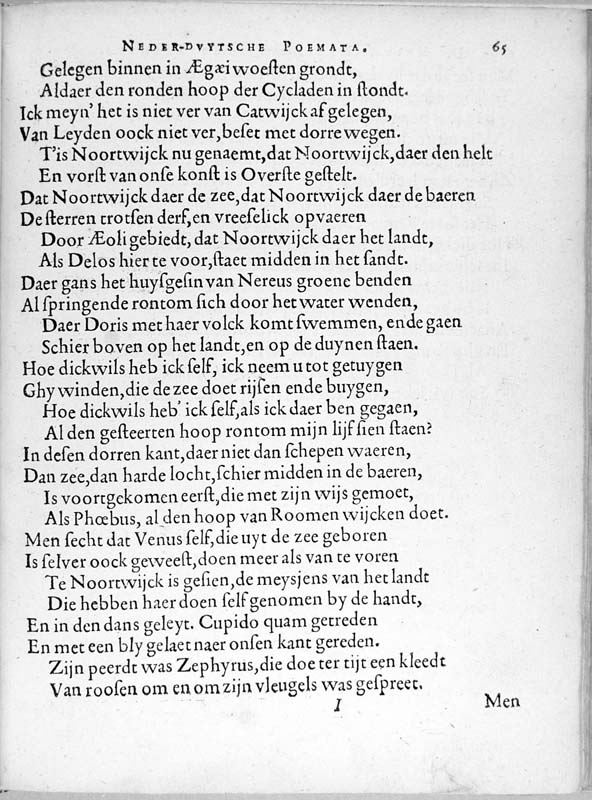 NEDER-DVYTSCHE POEMATA. 65
Gelegen binnen in Ægæi woeſten grondt,
Aldaer den ronden hoop der Cycladen in ſtondt.
Ick meyn' het is niet ver van Catwijck af gelegen,
Van Leyden oock niet ver, beſet met dorre wegen.
T'is Noortwijck nu genaemt, dat Noortwijck, daer den helt
En vorſt van onſe konſt is Overſte geſtelt.
Dat Noortwijck daer de zee, dat Noortwijck daer de baeren
De ſterren trotſen derf, en vreeſelick opvaeren
Door Æoli gebiedt, dat Noortwijck daer het landt,
Als Delos hier te voor, ſtaet midden in het ſandt.
Daer gans het huyſgeſin van Nereus groene benden
Al ſpringende rontom ſich door het water wenden,
Daer Doris met haer volck komt ſwemmen, ende gaen
Schier boven op het landt, en op de duynen ſtaen.
Hoe dickwils heb ick ſelf, ick neem u tot getuygen
Ghy winden, die de zee doet rijſen ende buygen,
Hoe dickwils heb' ick ſelf, als ick daer ben gegaen,
Al den geſteerten hoop rontom mijn lijf ſien ſtaen?
In deſen dorren kant, daer niet dan ſchepen waeren,
Dan zee, dan harde locht, ſchier midden in de baeren,
Is voortgekomen eerſt, die met zijn wijs gemoet,
Als Phœbus, al den hoop van Roomen wijcken doet.
Men ſecht dat Venus ſelf, die uyt de zee geboren
Is ſelver oock geweeſt, doen meer als van te voren
Te Noortwijck is geſien, de meysjens van het landt
Die hebben haer doen ſelf genomen by de handt,
En in den dans geleyt. Cupido quam getreden
En met een bly gelaet naer onſen kant gereden.
Zijn peerdt was Zephyrus, die doe ter tijt een kleedt
Van rooſen om en om zijn vleugels was geſpreet.
I Men